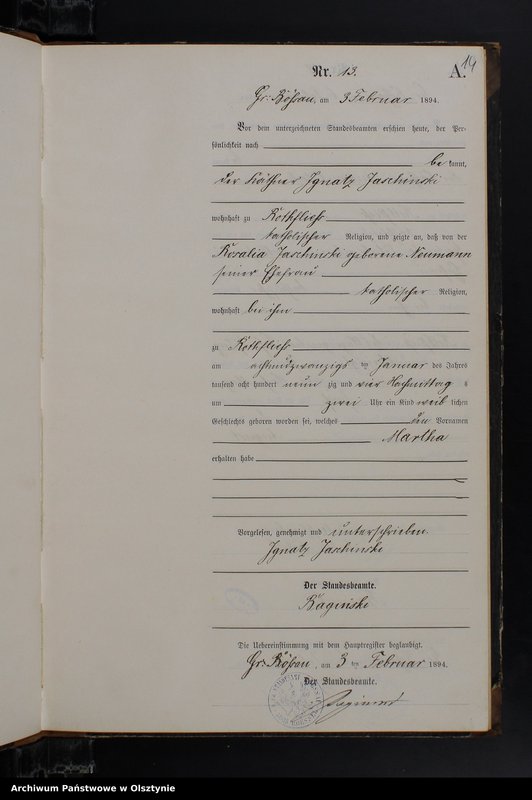 14
Nr. 13. A.
Gr. Bößau, am 3 Februar 1894.
Vor dem unterzeichneten Standesbeamten erschien heute, der Per-
sönlichkeit nach
be kannt,
der Käthner Ignatz Jaschinski
wohnhaft zu Rothfließ
katholischer Religion, und zeigte an, daß von der
Rosalia Jaschinski geborene Neumann
seiner Ehefrau
katholischer Religion,
wohnhaft bei ihm
zu Rothfließ
am achtundzwanzigsten Januar des Jahres
tausend acht hundert neun zig und vier Nachmittag s
um zwei Uhr ein Kind weib lichen
Geschlechts geboren worden sei, welches den Vornamen
Martha
erhalten habe
Vorgelesen, genehmigt und unterschrieben.
Ignatz Jaschinski
Der Standesbeamte.
Baginski
Die Uebereinstimmung mit dem Hauptregister beglaubigt.
Gr. Bößau, am 3 ten Februar 1894.
Der Standesbeamte.
Baginski
Archiwum Państwowe w Olsztynie